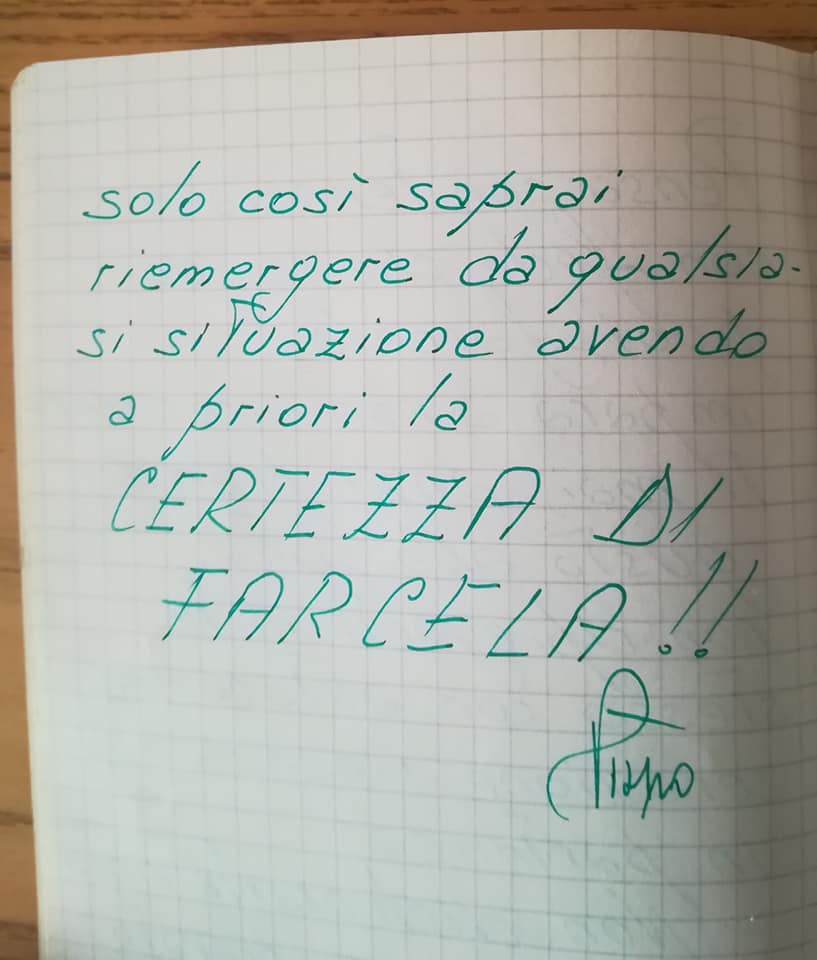 solo così saprai
riemergere da qualsia-
si situazione avendo
a priori la
CERTEZZA DI
FARCELA!!